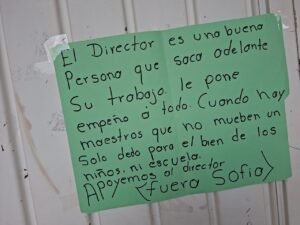 El Director es una buena
Persona que saca adelante
Su trabajo le pone
empeño a todo. Cuando hay
maestros que no mueben un
Solo dedo para el bien de los
niños, ni escuela.
Apoyemos al director
(fuera Sofia)